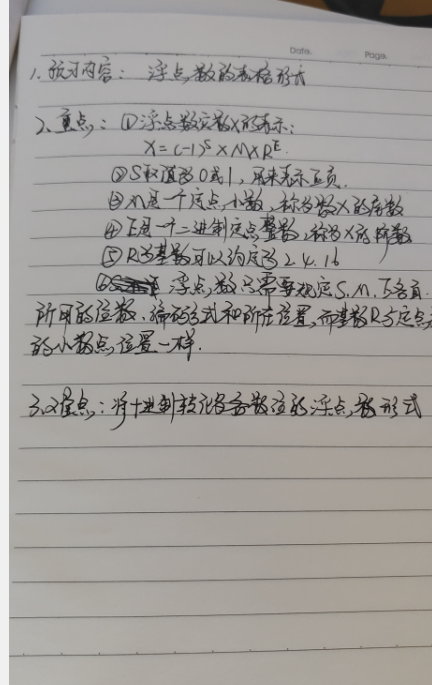 Date.    Page.
1. 预习内容： 浮点数的表格形式
2. 重点：①浮点数实数X的表示：
X=(-1)^S×M×R^E
②S取值为0或1，用来表示正负.
③M是一个定点小数，称为数X的尾数
④E是一个二进制定点整数，称为X的阶数
⑤R为基数可以约定为2.4.16
⑥浮点数只需要规定S.M.E各自
所用的位数.编码方式和所在位置，而基数R与定点
的小数点位置一样.
3.难点：将十进制转化为数位的浮点数形式